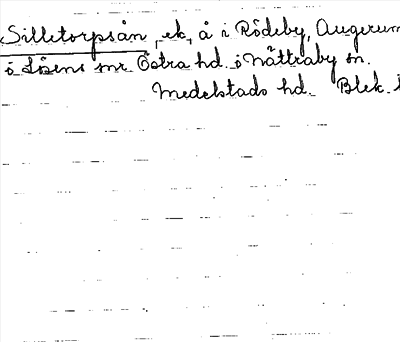 Silletorpsån, ek, å i Rödeby, Augerum
o Lösens snr Östra hd. o Nättraby sn.
Medelstads hd. Blek. l